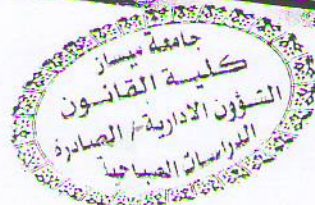 جامعة ميسان
كلية القانون
الشؤون الادارية / الصادرة
الدراسات الصباحية